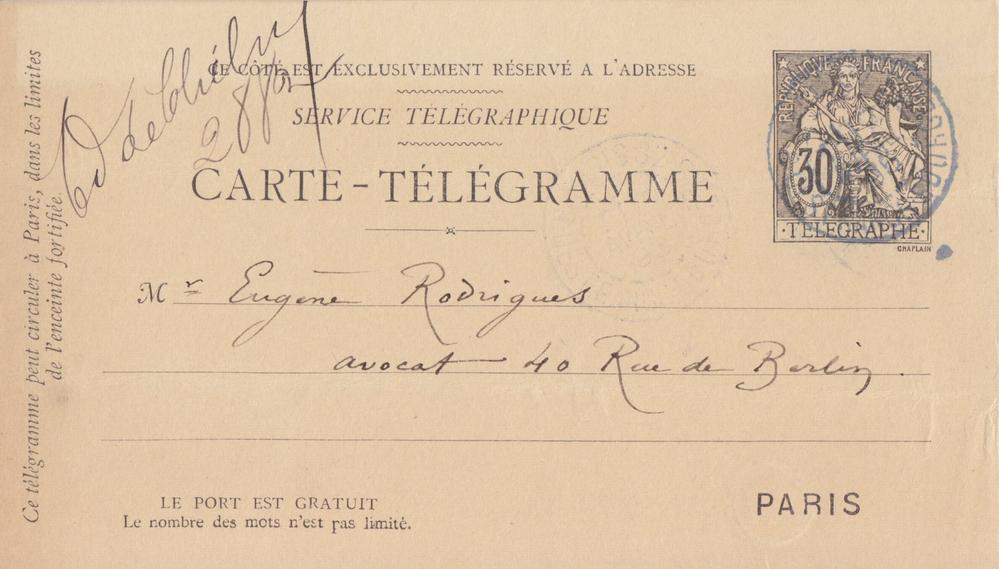 CE CÔTÉ EST EXCLUSIVEMENT RÉSERVÉ A L'ADRESSE
SERVICE TÉLÉGRAPHIQUE
CARTE-TÉLÉGRAMME
REPUBLIQUE FRANCAISE
30
·TELEGRAPHE·
CHAPLAIN
Mr Eugène Rodrigues
avocat 40 Rue de Berlin
LE PORT EST GRATUIT
Le nombre des mots n'est pas limité.
PARIS
Ce télégramme peut circuler à Paris, dans les limites
de l'enceinte fortifiée.